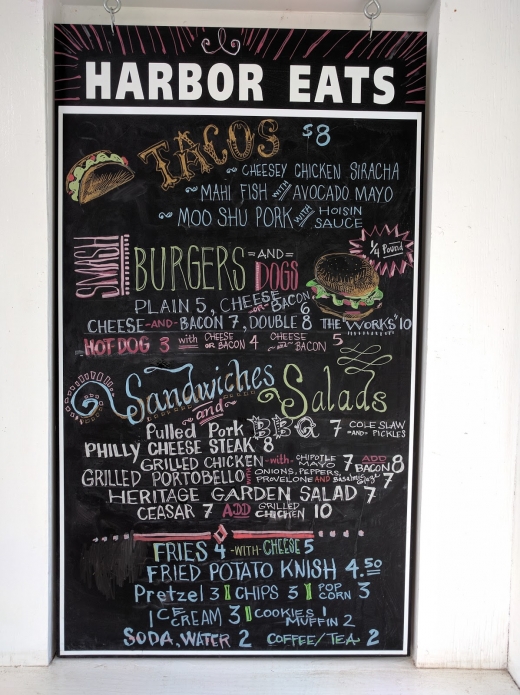 HARBOR EATS
TACOS $8
~ CHEESEY CHICKEN SIRACHA
~ MAHI FISH WITH AVOCADO MAYO
~ MOO SHU PORK WITH HOISIN SAUCE
SMASH BURGERS =AND= DOGS
1/4 Pound
PLAIN 5, CHEESE OR BACON 6
CHEESE-AND-BACON 7, DOUBLE 8 THE "WORKS" 10
HOT DOG 3 with CHEESE OR BACON 4 CHEESE BACON 5
Sandwiches and Salads
Pulled Pork BBQ 7 COLE SLAW -AND- PICKLES
PHILLY CHEESE STEAK 8
GRILLED CHICKEN -with- CHIPOTLE MAYO 7 ADD BACON 8
GRILLED PORTOBELLO ONIONS, PEPPERS, PROVELONE AND 7
HERITAGE GARDEN SALAD 7
CEASAR 7 ADD GRILLED CHICKEN 10
FRIES 4 -WITH- CHEESE 5
FRIED POTATO KNISH 4.50
Pretzel 3 CHIPS 3 POP CORN 3
ICE CREAM 3 COOKIES 1 MUFFIN 2
SODA, WATER 2 COFFEE/TEA 2